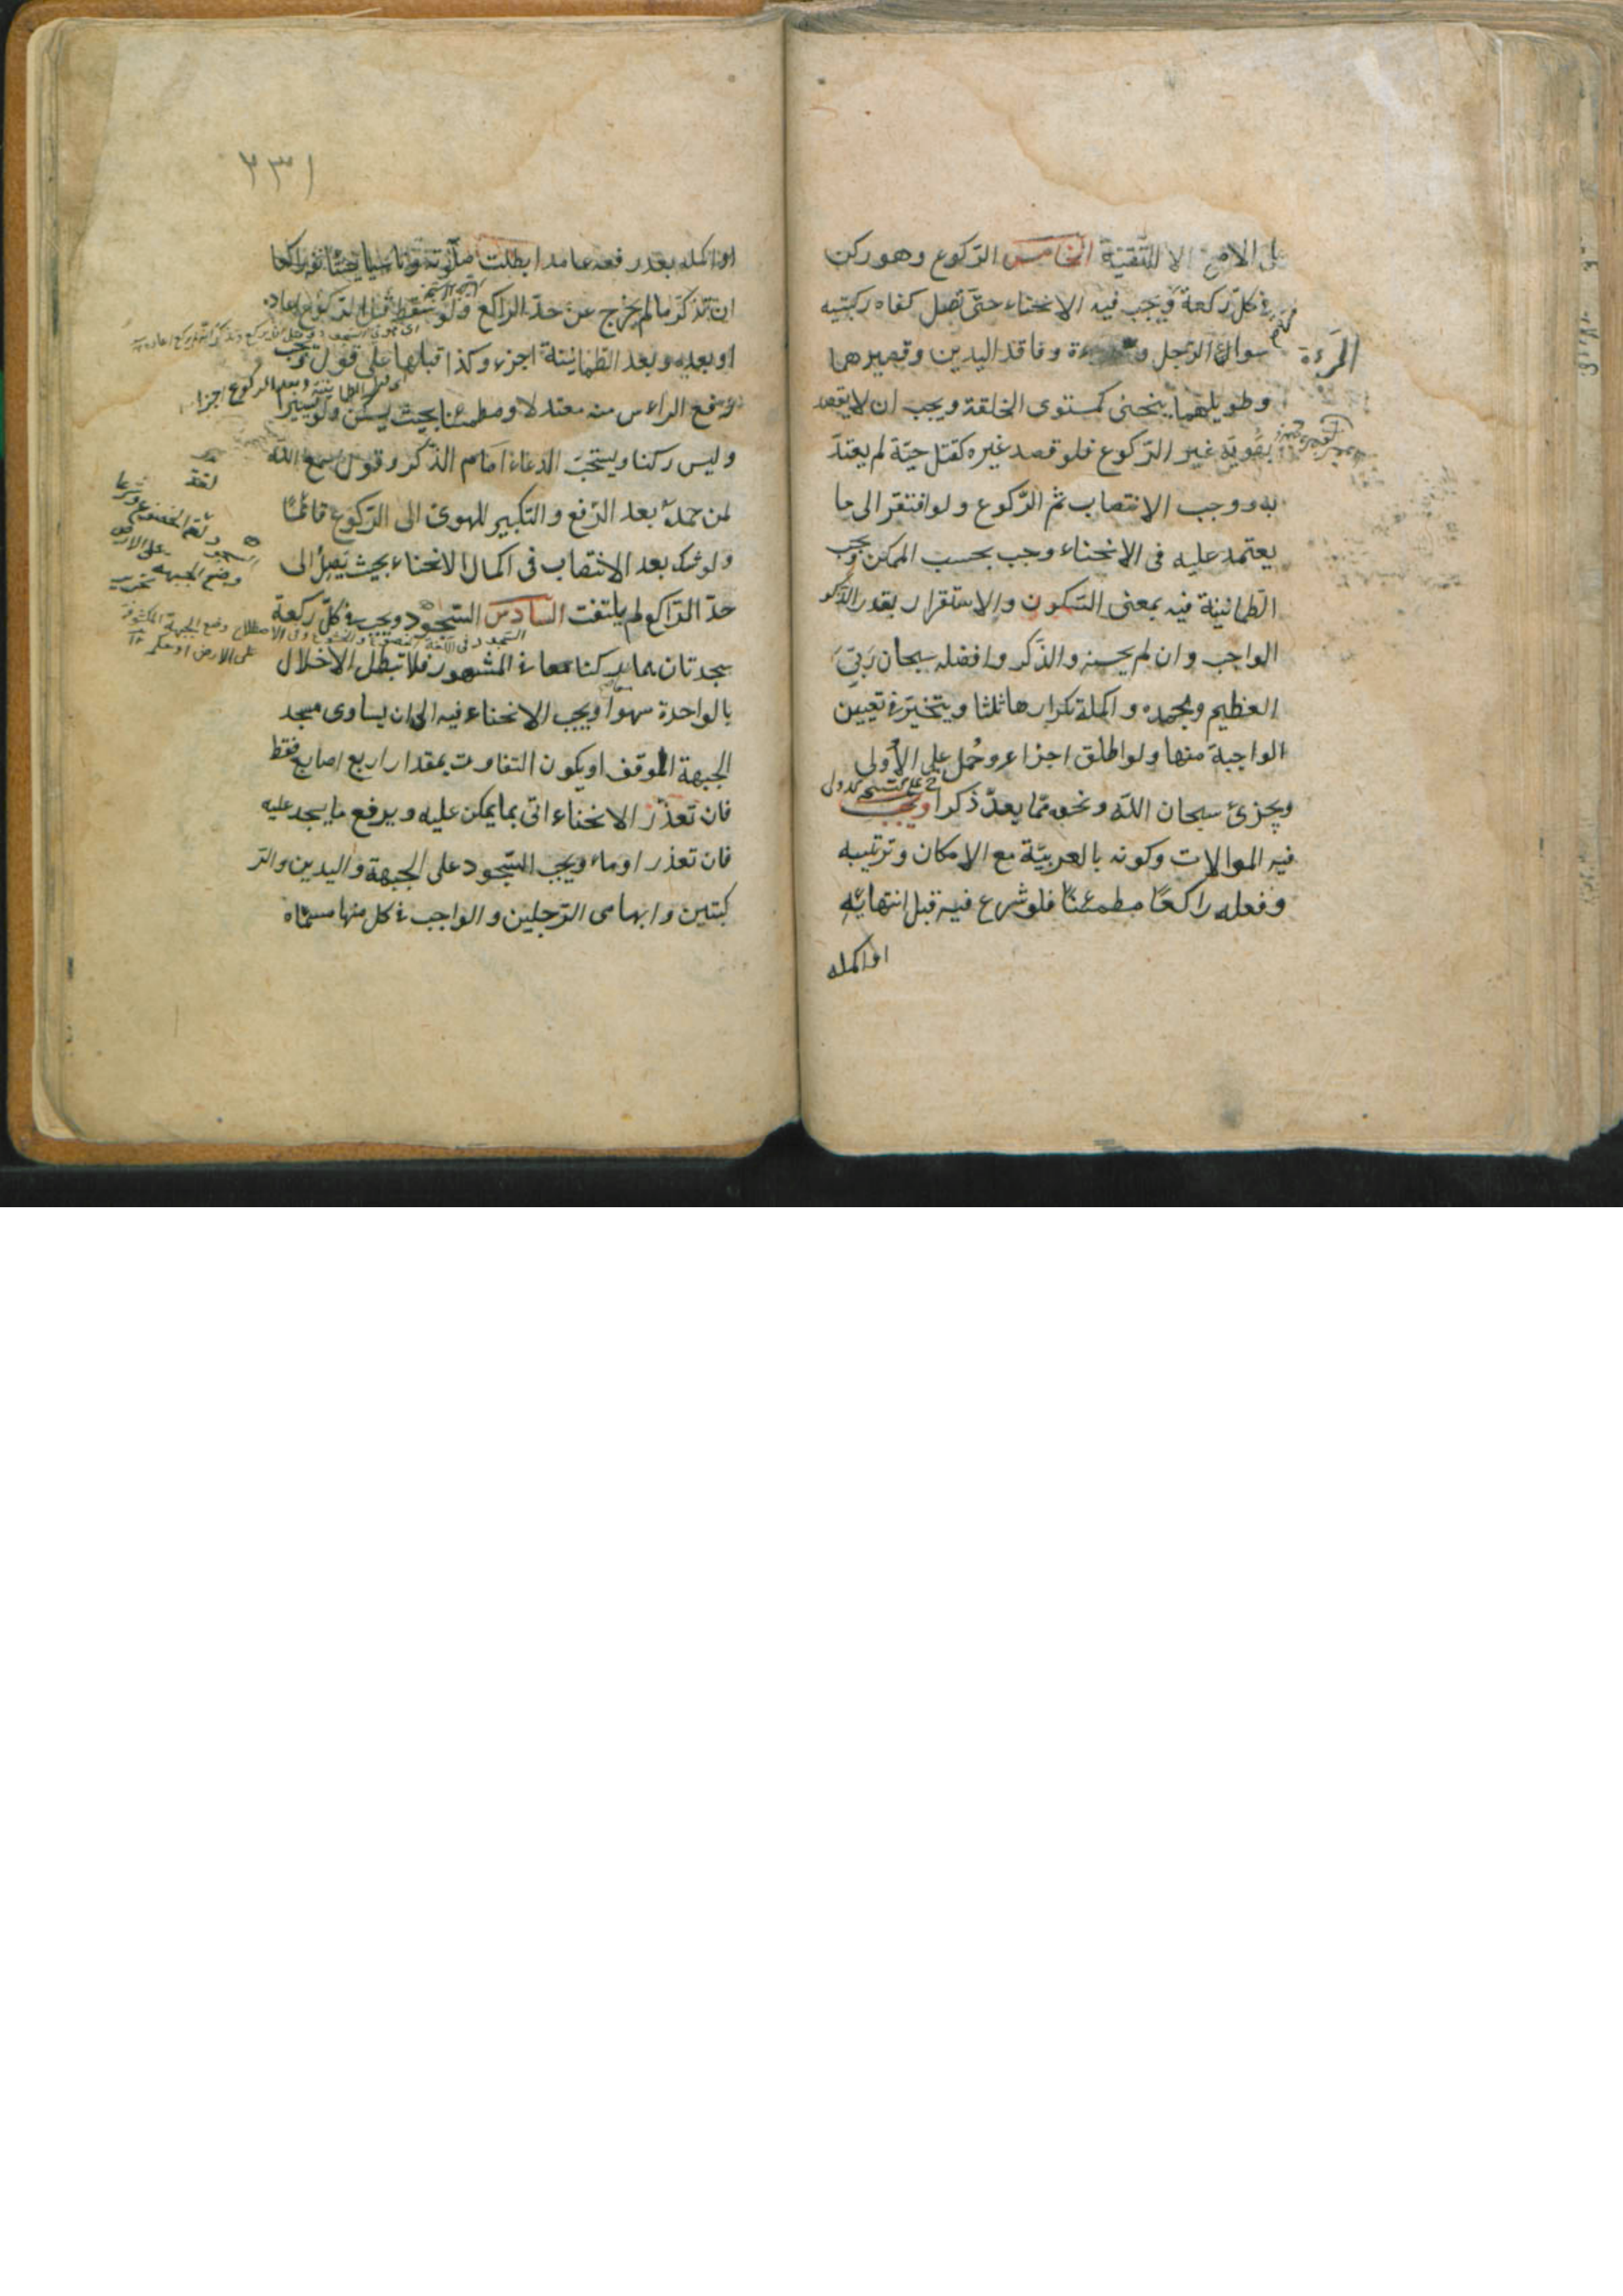 على الاصح الا للتقية الخامس الركوع وهو ركن
في كل ركعة ويجب فيه الانحناء حتى تصل كفاه ركبتيه
سواء الرجل و المرءة وفاقد اليدين وقصيرهما
وطويلهما ينحنى كمستوى الخلقة ويجب ان لا يقصد
بهويه غير الركوع فلو قصد غيره كقتل حية لم يعتد
به ووجب الانتصاب ثم الركوع ولو افتقر الى ما
يعتمد عليه فى الانحناء وجب بحسب الممكن ويجب
الطمانينة فيه بمعنى السكون والاستقرار بقدر الذكر
الواجب وان لم يحسنه والذكر وافضله سبحان ربى
العظيم وبحمده واكمله تكرارها ثلثا ويتخير في تعيين
الواجبة منها ولو اطلق اجزاء وحمل على الأولى
ويجزئ سبحان الله ونحوه مما يعد ذكرا ويجب
فيه الموالات وكونه بالعربية مع الامكان وترتيبه
وفعله راكعا مطمئنا فلو شرع فيه قبل انتهائه
او اكمله
٢٣١
او اكمله بعد رفعه عامدا بطلت صلوته وناسيا
ان تذكر ما لم يخرج عن حد الراكع ولو سقط قبل الركوع اعاد
او بعده وبعد الطمانينة اجزء وكذا قبلها على قول ويجب
رفع الراس منه معتدلا ومطمئنا بحيث يسكن ولو يسيرا
وليس ركنا ويستحب الدعاء امام الذكر وقول سمع الله
لمن حمده بعد الرفع والتكبير للهوى الى الركوع قائما
ولو شك بعد الانتصاب فى اكمال الانحناء بحيث يصل الى
حد الراكع لم يلتفت السادس السجود ويجب في كل ركعة
سجدتان هما ركنا معا في المشهور فلا تبطل الاخلال
بالواحدة سهوا ويجب الانحناء فيه الى ان يساوى مسجد
الجبهة الموقف او يكون التفاوت بمقدار اربع اصابع فقط
فان تعذر الانحناء اتى بما يمكن عليه ويرفع ما يسجد عليه
فان تعذر اوماء ويجب السجود على الجبهة واليدين والر
كبتين وابهامى الرجلين والواجب في كل منها مسماه
وضع الجبهة على الارض